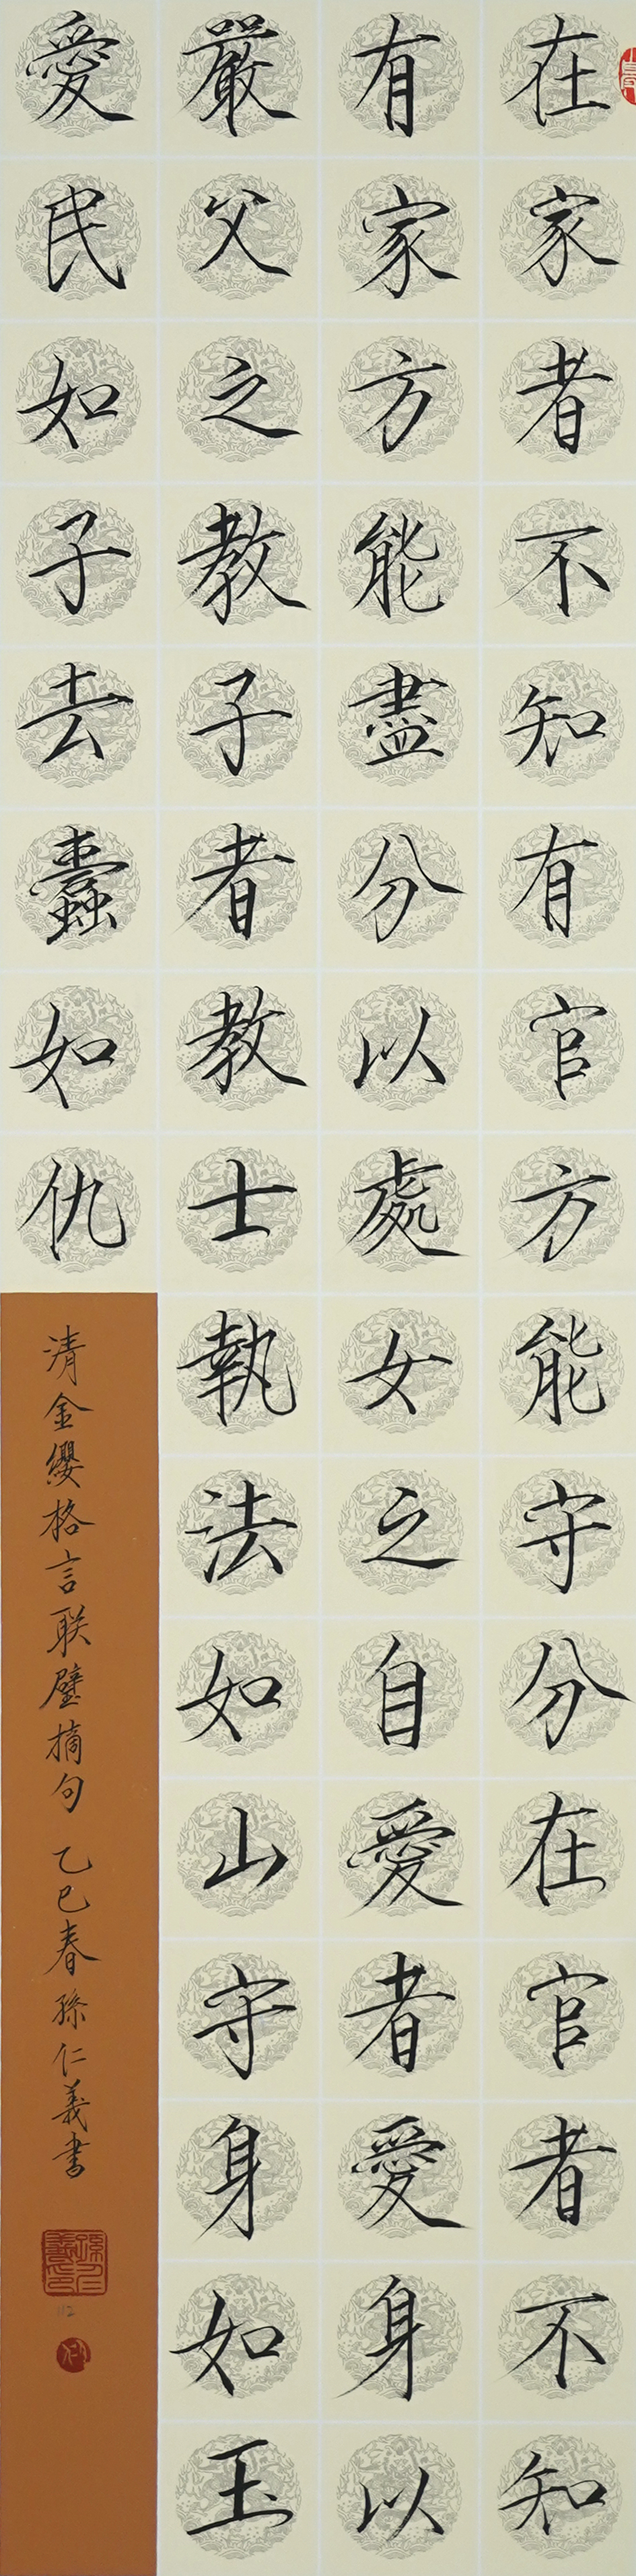 在家者不知有官方能守分在官者不知
有家方能盡分以處女之自愛者愛身以
嚴父之教子者教士執法如山守身如玉
愛民如子去蠹如仇
清金纓格言联璧摘句 乙巳春孫仁義書